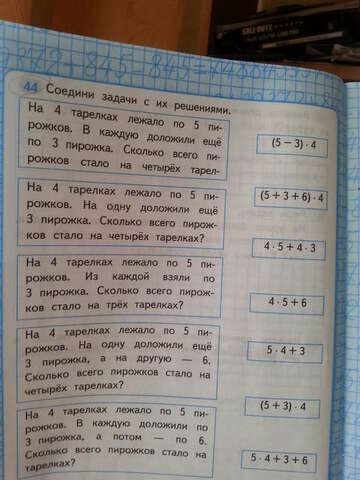 44 Соедини задачи с их решениями.
На 4 тарелках лежало по 5 пи-
рожков. В каждую доложили ещё
по 3 пирожка. Сколько всего пи-
рожков стало на четырёх тарел-
На 4 тарелках лежало по 5 пи-
рожков. На одну доложили ещё
3 пирожка. Сколько всего пирож-
ков стало на четырёх тарелках?
На 4 тарелках лежало по 5 пи-
рожков. Из каждой взяли по
3 пирожка. Сколько всего пирож-
ков стало на трёх тарелках?
На 4 тарелках лежало по 5 пи-
рожков. На одну доложили ещё
3 пирожка, а на другую — 6.
Сколько всего пирожков стало на
четырёх тарелках?
На 4 тарелках лежало по 5 пи-
рожков. В каждую доложили по
3 пирожка, а потом — по 6.
Сколько всего пирожков стало на
тарелках?
(5 − 3) · 4
(5 + 3 + 6) · 4
4 · 5 + 4 · 3
4 · 5 + 6
5 · 4 + 3
(5 + 3) · 4
5 · 4 + 3 + 6
CALL OF DUTY